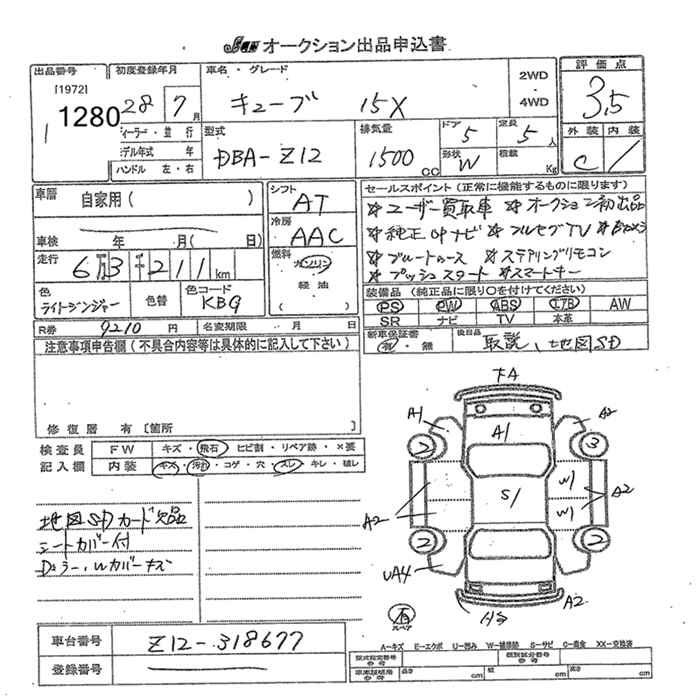 オークション出品申込書
出品番号 初度登録年月 車名・グレード 2WD ・ 4WD 評価点
[1972]
1280 28 7月 キューブ 15X 3.5
ディーラー・並行 型式 排気量 ドア 5 定員 5人 外装 内装
モデル年式 年 DBA-Z12 1500cc 形状 W 積載 Kg C
ハンドル 左・右
車暦 自家用( ) シフト AT セールスポイント(正常に機能するものに限ります)
車検 年 月(日) 冷房 AAC ☆ユーザー買取車 ☆オークション初出品
走行 6万3千211km 燃料 ガソリン・軽油( ) ☆純正OPナビ ☆フルセグTV
☆ブルートゥース ☆ステアリングリモコン
☆プッシュスタート ☆スマートキー
色 ライトジンジャー 色替 色コード KBG 装備品(純正品に限り○を付けてください)
PS PW ABS エアB AW
SR ナビ TV 本革
R券 9210円 名変期限 月 日 新車保証書 有・無 後日品 取説、地図SD
注意事項申告欄(不具合内容等は具体的に記入して下さい)
修復暦 有〔箇所 〕
検査員記入欄 FW キズ・飛石・ヒビ割・リペア跡・×要
内装 キズ・汚れ・コゲ・穴・スレ・キレ・破レ
地図SDカード欠品
シートカバー付
Dミラー、Wカバーキズ
FA
A1 A2
2 A1 3
W1
A2 S1 W1 A2
2 2
UA4
有 スペア
A2
車台番号 Z12-318677
登録番号
A-キズ E-エクボ U-凹み W-補修跡 S-サビ C-腐食 XX-交換済
型式指定番号 参考 類別区分番号 参考
車庫証明用 参考 長さ cm 幅 cm 高さ cm